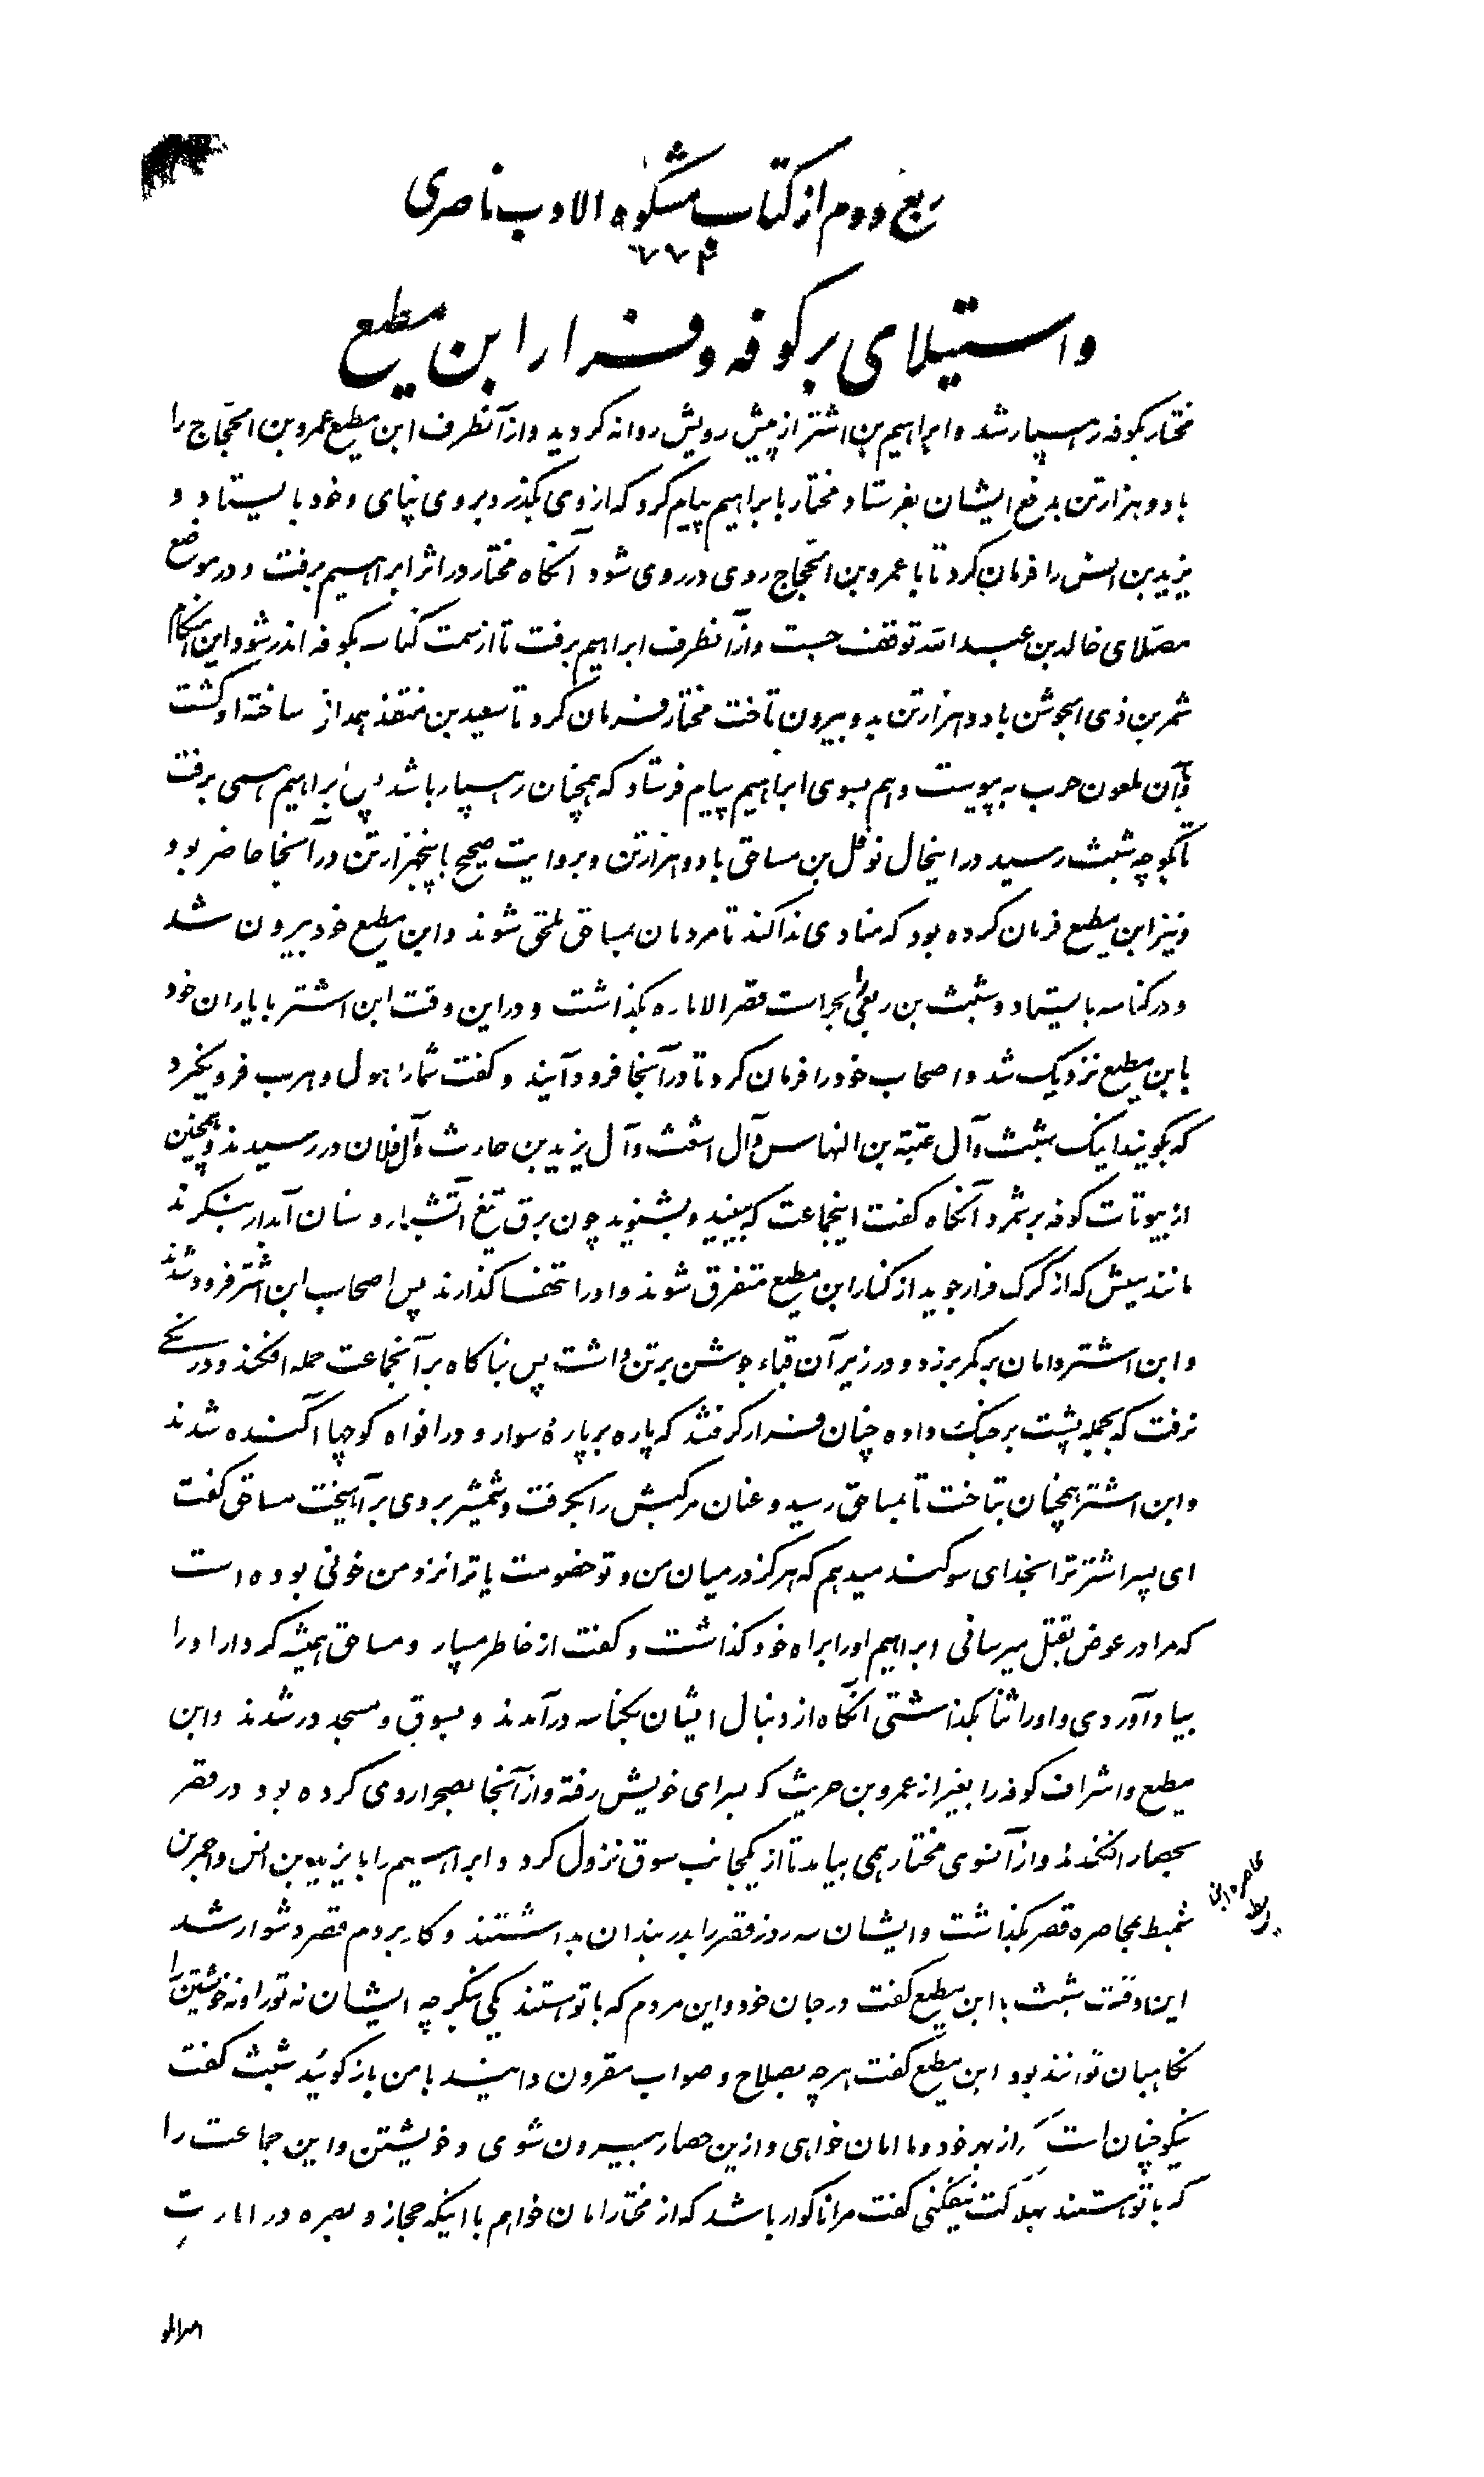 ربع دوم از کتاب مشکوة الادب ناصری
۷۷۴
واستیلای بر کوفه و فرار ابن مطیع
مختار بکوفه رهسپار شد و ابراهیم بن اشتر از پیش رویش روانه گردید و از آنطرف ابن مطیع عمرو بن الحجّاج را
با دو هزار تن بدفع ایشان بفرستاد مختار با براهیم پیام کرد که از وی بگذر و بر وی نپای و خود بایستاد و
یزید بن انس را فرمان کرد تا با عمرو بن الحجّاج روی در روی شود آنگاه مختار در اثر ابراهیم برفت و در موضع
مصلّای خالد بن عبد الله توقف جست و از آنطرف ابراهیم برفت تا از سمت کناسه بکوفه اندر شود این هنگام
شمر بن ذی الجوشن با دو هزار تن بدو بیرون تاخت مختار فرمان کرد تا سعید بن منقذ همدانی ساخته او گشت
و بآن ملعون حرب به پیوست و هم بسوی ابراهیم پیام فرستاد که همچنان رهسپار باشد پس ابراهیم همی برفت
تا بکوچه شبث رسید در اینحال نوفل بن مساحق با دو هزار تن و بروایت صحیح با پنجهزار تن در آنجا حاضر بود
و نیز ابن مطیع فرمان کرده بود که منادی ندا کند تا مردمان بمساحق ملحق شوند و ابن مطیع خود بیرون شد
و در کناسه بایستاد و شبث بن ربعی را بحراست قصر الاماره بگذاشت و در این وقت ابن اشتر با یاران خود
بابن مطیع نزدیک شد و اصحاب خود را فرمان کرد تا در آنجا فرود آیند و گفت شما را هول و هرب فرو نگیرد
که بگویند اینک شبث و آل عتبة بن النهاس و آل اشعث و آل یزید بن حارث و آل فلان در رسیدند و همچنین
از بیوتات کوفه بر شمرد آنگاه گفت اینجماعت که ببینید و بشنوید چون برق تیغ آتشبار و سنان آبدار بنگرند
مانند میش که از گرگ فرار جوید از کنار ابن مطیع متفرق شوند و او را تنها گذارند پس اصحاب ابن اشتر فرود شدند
و ابن اشتر دامان بر کمر بزد و در زیر آن قباء جوشن بر تن داشت پس بناگاه بر آنجماعت حمله افکند و درنگی
نرفت که بجمله پشت بر جنگ داده چنان فرار گرفتند که پاره بر پارهٔ سوار و در افواه کوچها آگنده شدند
و ابن اشتر همچنان بتاخت تا بمساحق رسید و عنان مرکبش را بگرفت و شمشیر بر وی بر آهیخت مساحق گفت
ای پسر اشتر ترا بخدای سوگند میدهم که هرگز در میان من و تو خصومت یا ترا نزد من خونی بوده است
که مرا در عوض بقتل میرسانی ابراهیم او را براه خود گذاشت و گفت از خاطر مسپار و مساحق همیشه کردار او را
بیاد آوردی و او را ثنا بگذاشتی آنگاه از دنبال ایشان بکناسه در آمدند و بسوق و مسجد در شدند و ابن
مطیع و اشراف کوفه را بغیر از عمرو بن حریث که بسرای خویش رفته و از آنجا بصحرا روی کرده بود در قصر
بحصار افکندند و از آنسوی مختار همی بیامد تا از یکجانب سوق نزول کرد و ابراهیم را با یزید بن انس و احمر بن
شمیط بمحاصره قصر بگذاشت و ایشان سه روز قصر را بدر بندان بداشتند و کار بر مردم قصر دشوار شد
این وقت شبث با ابن مطیع گفت در جان خود و این مردم که با تو هستند یکی بنگر چه ایشان نه تو را و نه خویشتن را
نگاهبان توانند بود ابن مطیع گفت هر چه بصلاح و صواب مقرون دانید با من باز گوئید شبث گفت
نیکو چنان است که از بهر خود و ما امان خواهی و ازین حصار بیرون شوی و خویشتن و این جماعت را
که با تو هستند بهلاکت نیفکنی گفت مرا ناگوار باشد که از مختار امان خواهم با اینکه حجاز و بصره در امارت